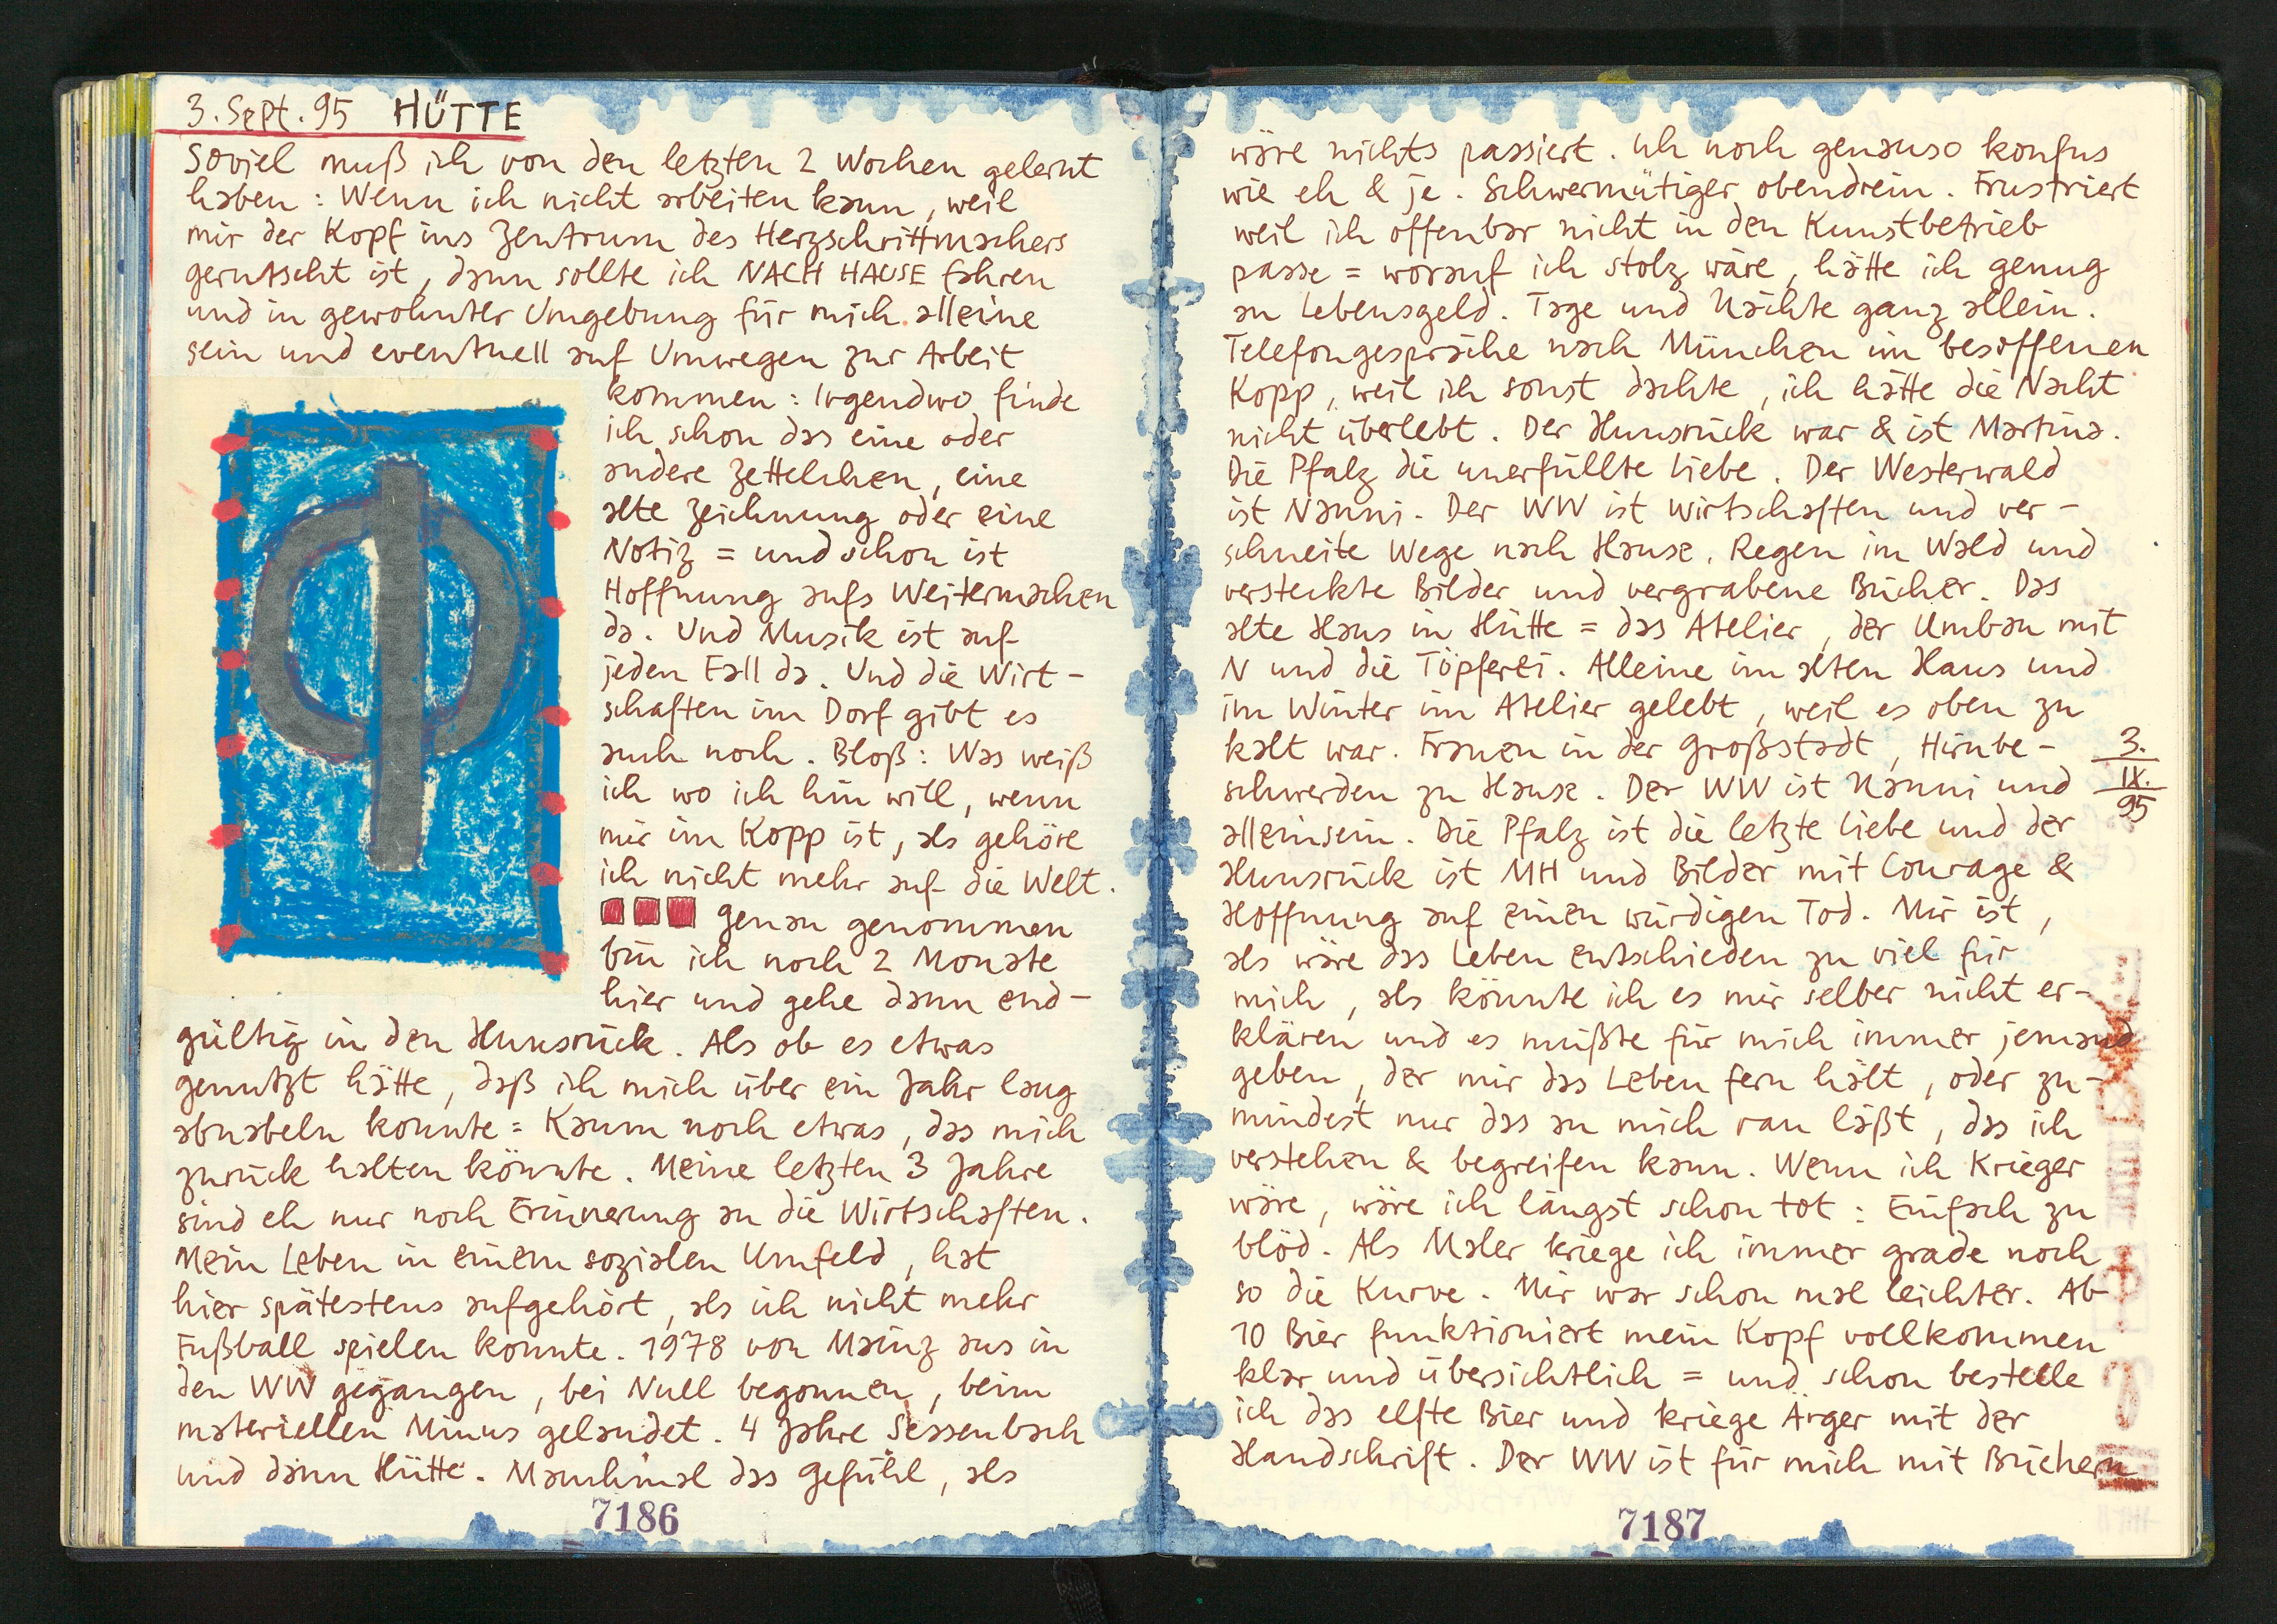 3. Sept. 95 HÜTTE
Soviel muß ich von den letzten 2 Wochen gelernt
haben : Wenn ich nicht arbeiten kann, weil
mir der Kopf ins Zentrum des Herzschrittmachers
gerutscht ist, dann sollte ich NACH HAUSE fahren
und in gewohnter Umgebung für mich alleine
sein und eventuell auf Umwegen zur Arbeit
kommen : Irgendwo finde
ich schon das eine oder
andere Zettelchen, eine
alte Zeichnung oder eine
Notiz = und schon ist
Hoffnung aufs Weitermachen
da. Und Musik ist auf
jeden Fall da. Und die Wirt-
schaften im Dorf gibt es
auch noch. Bloß: Was weiß
ich wo ich hin will, wenn
mir im Kopp ist, als gehöre
ich nicht mehr auf die Welt.
Genau genommen
bin ich noch 2 Monate
hier und gehe dann end-
gültig in den Hunsrück. Als ob es etwas
genutzt hätte, daß ich mich über ein Jahr lang
abnabeln konnte = Kaum noch etwas, das mich
zurück halten könnte. Meine letzten 3 Jahre
sind eh nur noch Erinnerung an die Wirtschaften.
Mein Leben in einem sozialen Umfeld, hat
hier spätestens aufgehört, als ich nicht mehr
Fußball spielen konnte. 1978 von Mainz aus in
den WW gegangen, bei Null begonnen, beim
materiellen Minus gelandet. 4 Jahre Sessenbach
und dann Hütte. Manchmal das Gefühl, als
7186
wäre nichts passiert. Ich noch genauso konfus
wie eh & je. Schwermütiger obendrein. Frustriert
weil ich offenbar nicht in den Kunstbetrieb
passe = worauf ich stolz wäre, hätte ich genug
an Lebensgeld. Tage und Nächte ganz allein.
Telefongespräche nach München im besoffenen
Kopp, weil ich sonst dachte, ich hätte die Nacht
nicht überlebt. Der Hunsrück war & ist Martina.
Die Pfalz die unerfüllte Liebe. Der Westerwald
ist Nanni. Der WW ist Wirtschaften und ver-
schneite Wege nach Hause. Regen im Wald und
versteckte Bilder und vergrabene Bücher. Das
alte Haus in Hütte = das Atelier, der Umbau mit
N und die Töpferei. Alleine im alten Haus und
im Winter im Atelier gelebt, weil es oben zu
kalt war. Frauen in der Großstadt, Hirnbe-
schwerden zu Hause. Der WW ist Nanni und
alleinsein. Die Pfalz ist die letzte Liebe und der
Hunsrück ist MH und Bilder mit Courage &
Hoffnung auf einen würdigen Tod. Mir ist,
als wäre das Leben entschieden zu viel für
mich, als könnte ich es mir selber nicht er-
klären und es müßte für mich immer jemand
geben, der mir das Leben fern hält, oder zu-
mindest nur das an mich ran läßt, das ich
verstehen & begreifen kann. Wenn ich Krieger
wäre, wäre ich längst schon tot : Einfach zu
blöd. Als Maler kriege ich immer grade noch
so die Kurve. Mir war schon mal leichter. Ab
10 Bier funktioniert mein Kopf vollkommen
klar und übersichtlich = und schon bestelle
ich das elfte Bier und kriege Ärger mit der
Handschrift. Der WW ist für mich mit Büchern
3.
IX.
95
7187